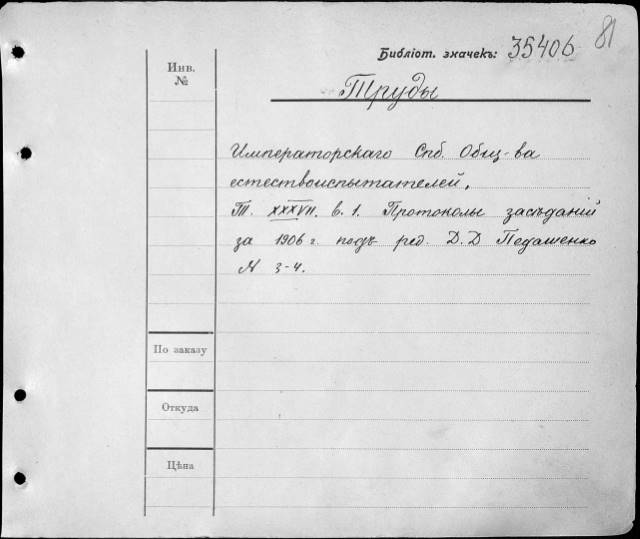 81
Библіот. значекъ: 35406
Инв.
№
Труды
Императорскаго Спб. Общ-ва
естествоиспытателей.
Т. XXXVII. в. 1. Протоколы засѣданій
за 1906 г. подъ ред. Д. Д Педашенко
N 3-4.
По заказу
Откуда
Цѣна